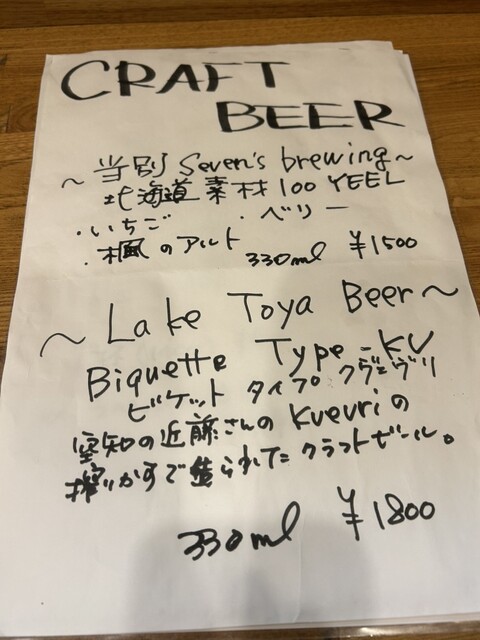 CRAFT
BEER
～当別 Seven's brewing～
北海道素材100 YEEL
・いちご ・ベリー
・楓のアルト 330ml ¥1500
～Lake Toya Beer～
Biquette Type-KV
ビケット タイプ クヴェヴリ
空知の近藤さんのKvevriの
搾りかすで造られたクラフトビール。
330ml ¥1800